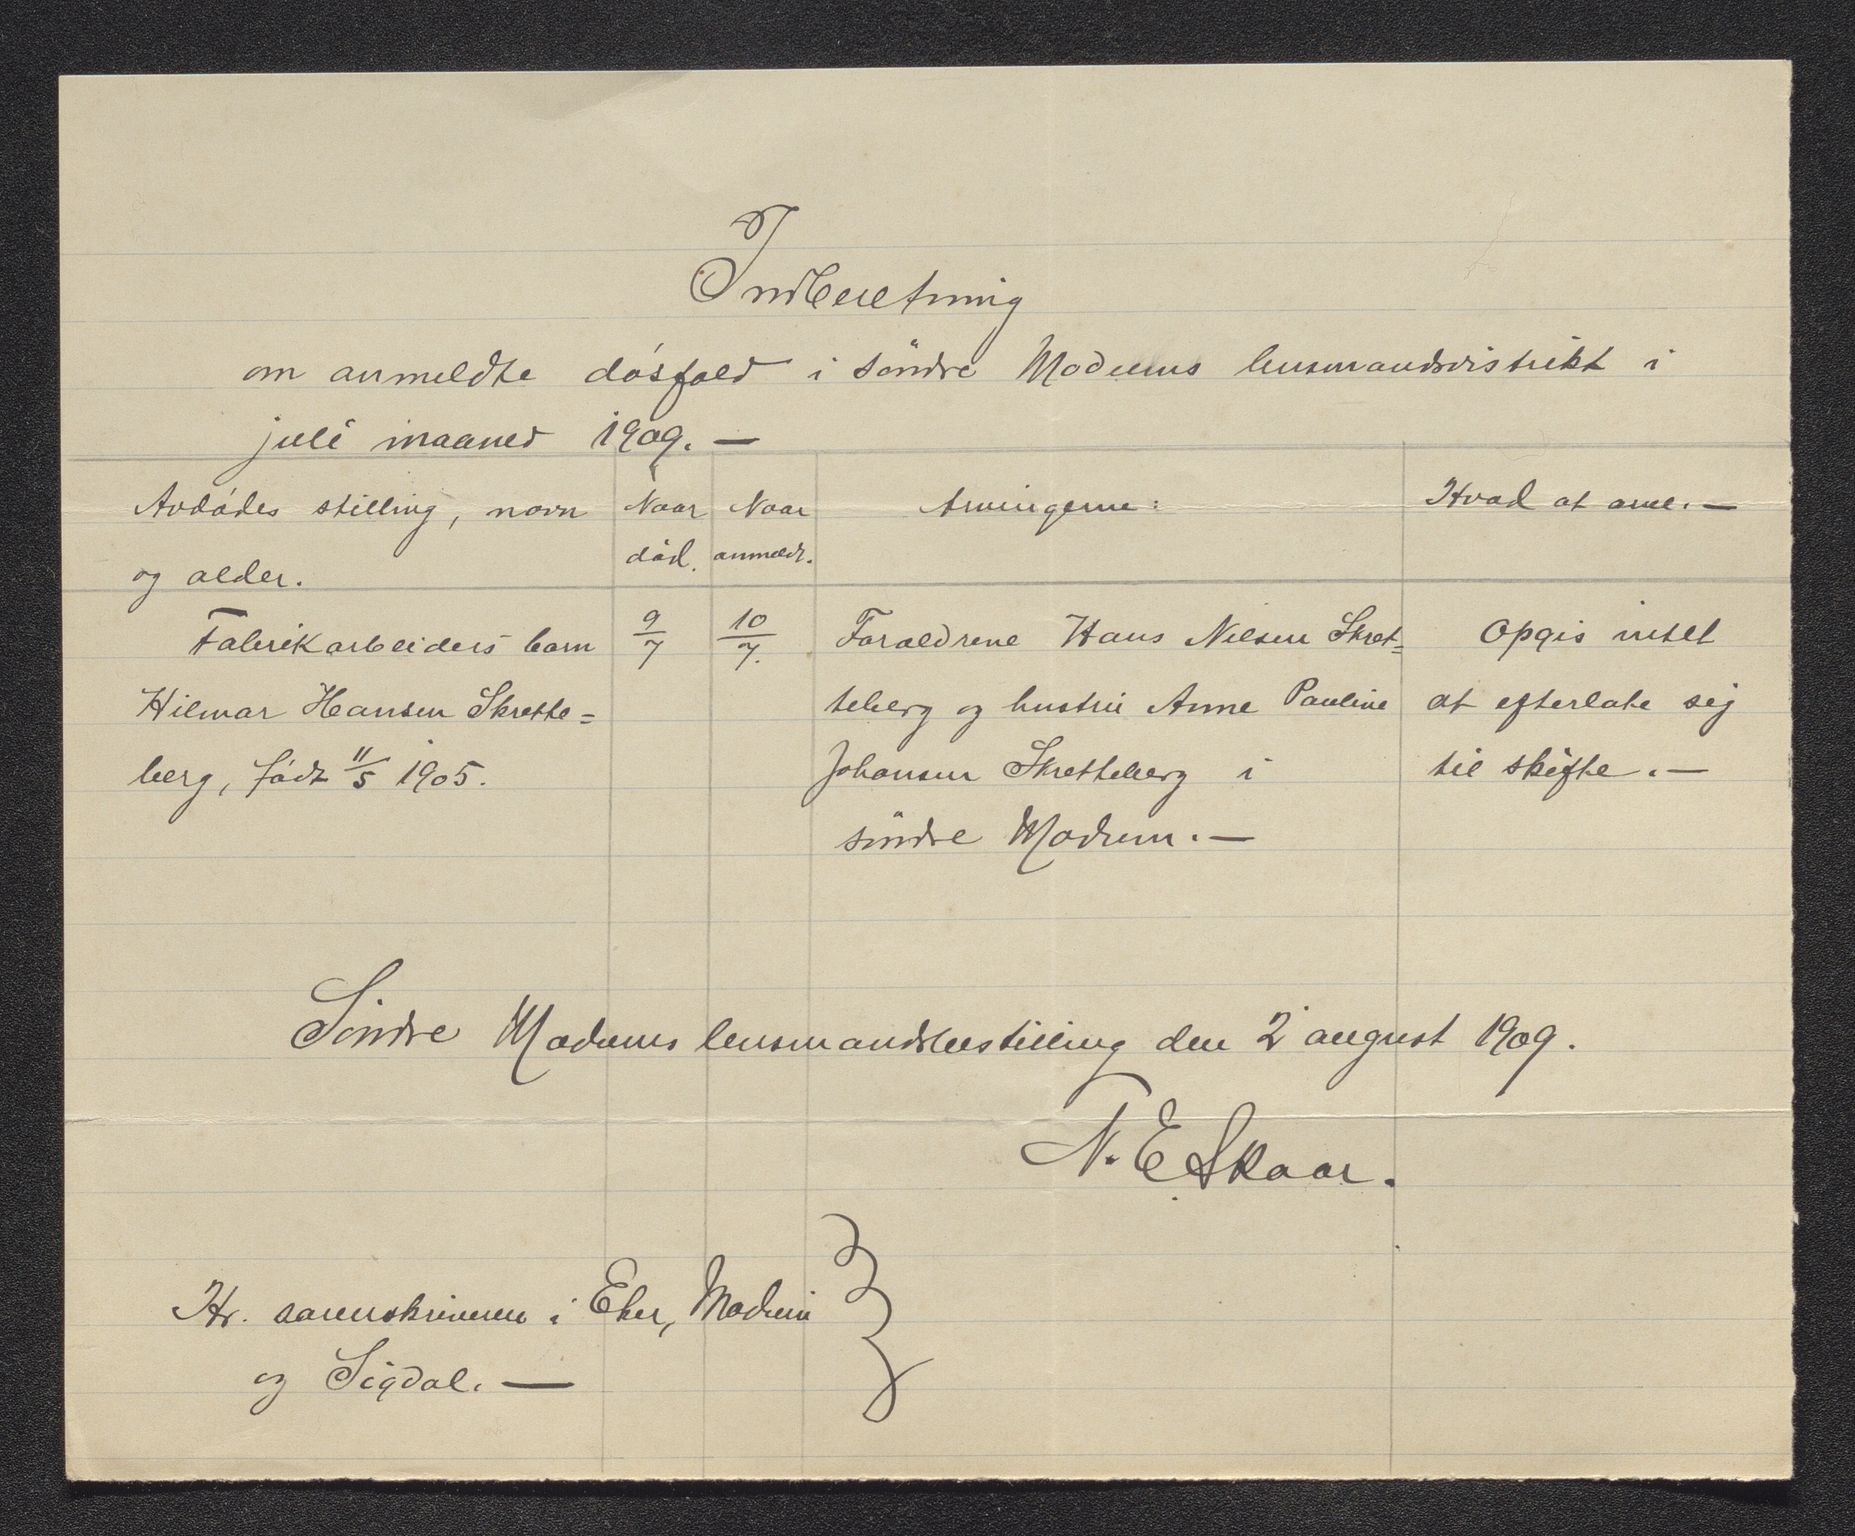 Indberetning
om anmeldte dósfald i söndre Modums lensmandsdistrikt i
juli maaned 1909. —
Avdódes stilling, navn
og alder.
Naar
död.
Naar
anmeldt.
Arvingerne:
Hvad at arve. —
Fabrikarbeiders barn
Hilmar Hansen Skrette=
berg, födt 11/5 1905.
9/7
10/7.
Foraeldrene Hans Nilsen Skret=
teberg og hustru Anne Pauline
Johansen Skretteberg i
söndre Modum. —
Opgis intet
at efterlate sig
til skifte. —
Söndre Modums lensmandsbestilling den 2 august 1909.
N. E Skaar.
Hr. sorenskriveren i Eker, Modum
og Sigdal. —